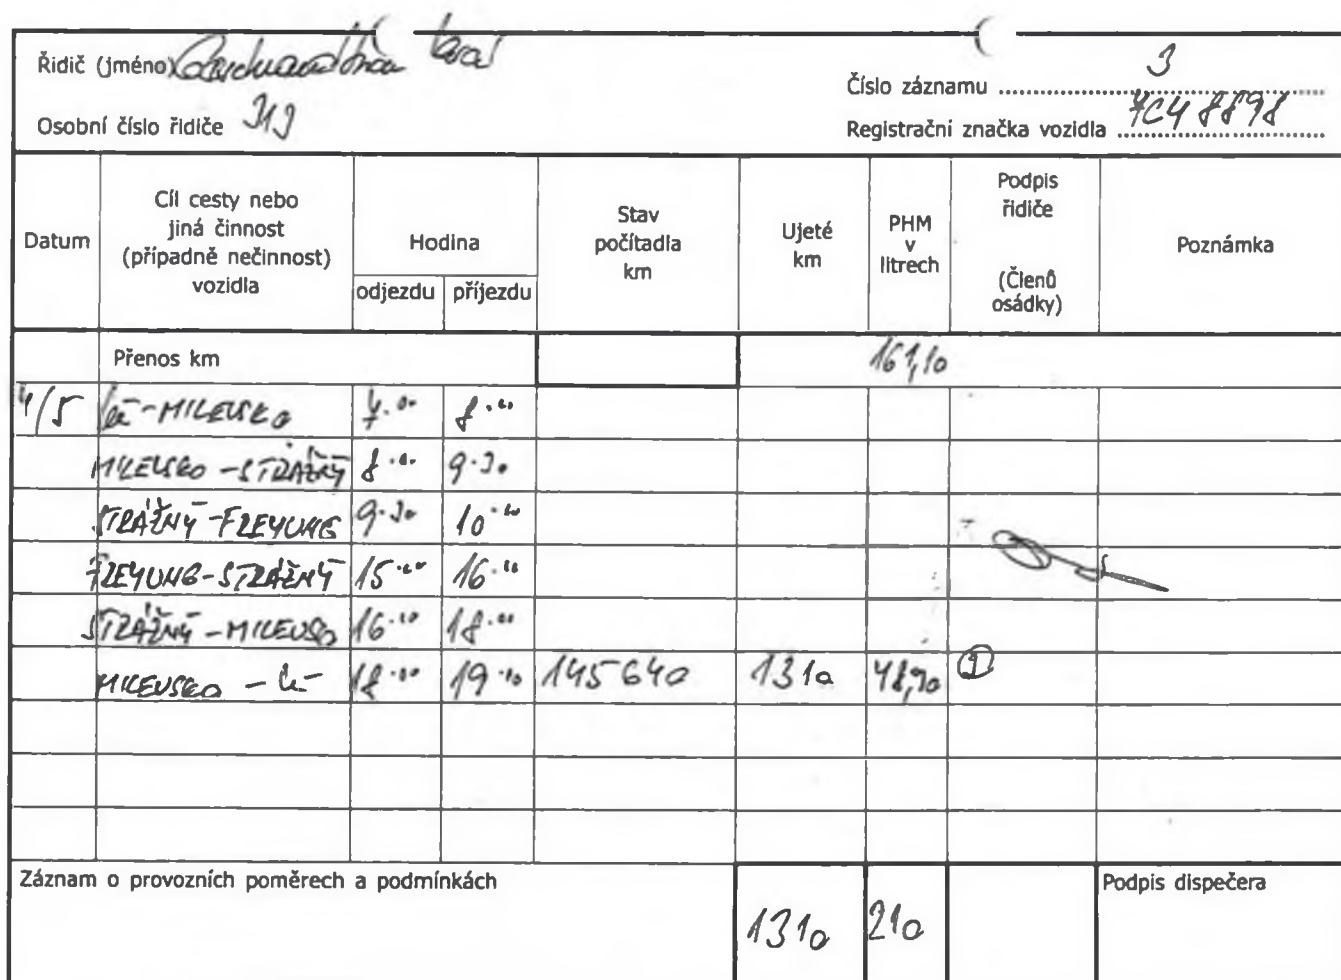 Řidič (jméno)
Číslo záznamu 3
Osobní číslo řidiče 319
Registrační značka vozidla 7C4 8898
Datum
Cíl cesty nebo
jiná činnost
(případně nečinnost)
vozidla
Hodina
odjezdu příjezdu
Stav
počítadla
km
Ujeté
km
PHM
v
litrech
Podpis
řidiče
(Členů
osádky)
Poznámka
Přenos km 161,10
4/5 - MILEVSKO 7.00 8.00
MILEVSKO - STRÁŽNÝ 8.00 9.30
STRÁŽNÝ - FREYUNG 9.30 10.00
FREYUNG - STRÁŽNÝ 15.00 16.00
STRÁŽNÝ - MILEVSKO 16.00 18.00
MILEVSKO - 18.00 19.00 145640 1310 48,90
Záznam o provozních poměrech a podmínkách
1310 210
Podpis dispečera